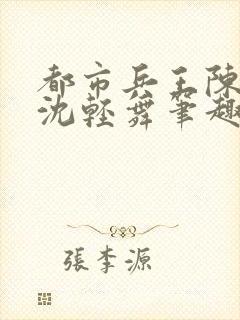 都市兵王陳
沈輕舞筆趣
張李源